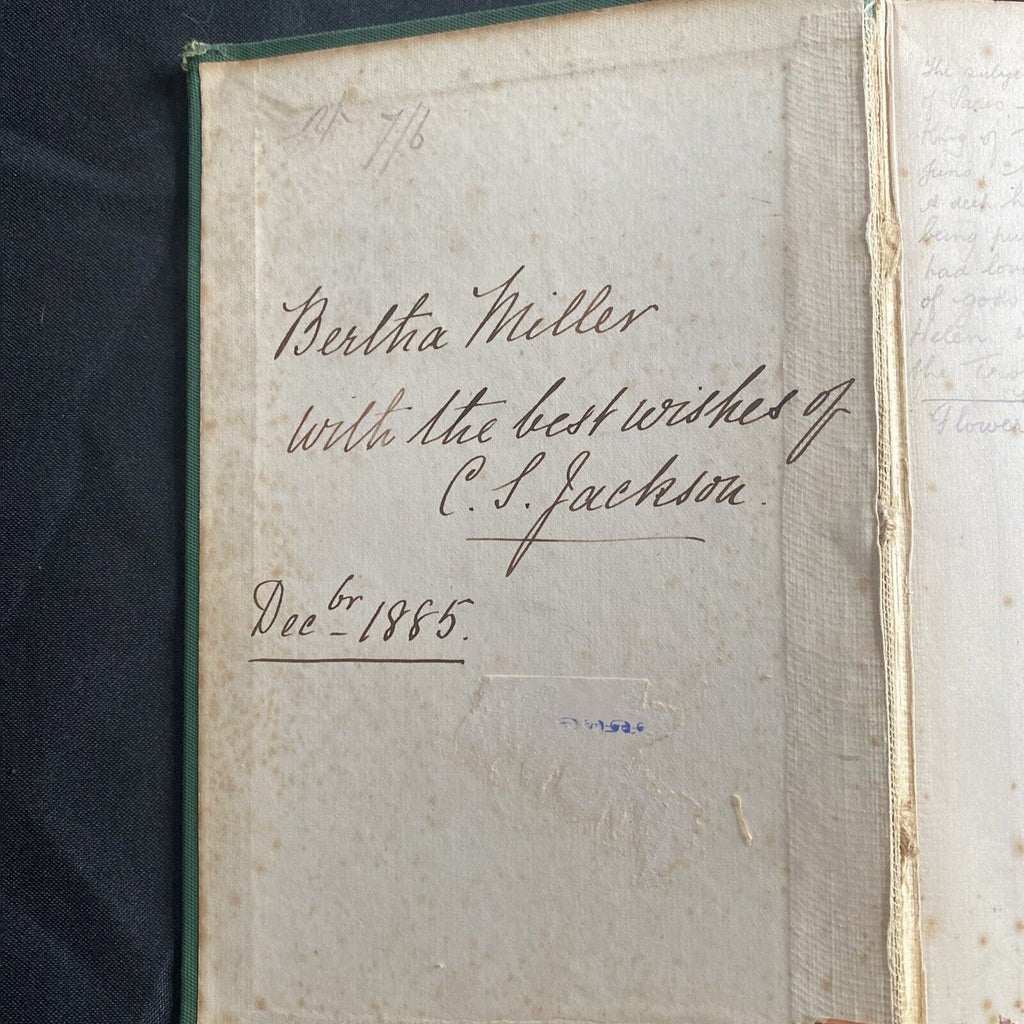 7/6
Bertha Miller
with the best wishes of
C. S. Jackson.
Decbr 1885.
The
of Paris
King of
Juno
being
had
of gods
Helen
the
Flower